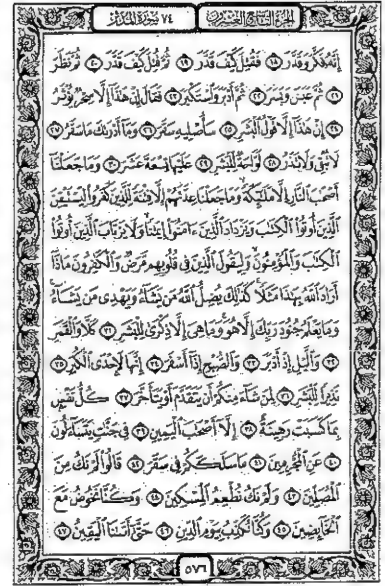 الجزء التاسع والعشرون ٧٤ سورة المدثر
إِنَّهُ فَكَّرَ وَقَدَّرَ ١٨ فَقُتِلَ كَيْفَ قَدَّرَ ١٩ ثُمَّ قُتِلَ كَيْفَ قَدَّرَ ٢٠ ثُمَّ نَظَرَ
٢١ ثُمَّ عَبَسَ وَبَسَرَ ٢٢ ثُمَّ أَدْبَرَ وَاسْتَكْبَرَ ٢٣ فَقَالَ إِنْ هَٰذَا إِلَّا سِحْرٌ يُؤْثَرُ
٢٤ إِنْ هَٰذَا إِلَّا قَوْلُ الْبَشَرِ ٢٥ سَأُصْلِيهِ سَقَرَ ٢٦ وَمَا أَدْرَاكَ مَا سَقَرُ ٢٧
لَا تُبْقِي وَلَا تَذَرُ ٢٨ لَوَّاحَةٌ لِلْبَشَرِ ٢٩ عَلَيْهَا تِسْعَةَ عَشَرَ ٣٠ وَمَا جَعَلْنَا
أَصْحَابَ النَّارِ إِلَّا مَلَائِكَةً وَمَا جَعَلْنَا عِدَّتَهُمْ إِلَّا فِتْنَةً لِلَّذِينَ كَفَرُوا لِيَسْتَيْقِنَ
الَّذِينَ أُوتُوا الْكِتَابَ وَيَزْدَادَ الَّذِينَ آمَنُوا إِيمَانًا وَلَا يَرْتَابَ الَّذِينَ أُوتُوا
الْكِتَابَ وَالْمُؤْمِنُونَ وَلِيَقُولَ الَّذِينَ فِي قُلُوبِهِمْ مَرَضٌ وَالْكَافِرُونَ مَاذَا
أَرَادَ اللَّهُ بِهَٰذَا مَثَلًا كَذَٰلِكَ يُضِلُّ اللَّهُ مَنْ يَشَاءُ وَيَهْدِي مَنْ يَشَاءُ
وَمَا يَعْلَمُ جُنُودَ رَبِّكَ إِلَّا هُوَ وَمَا هِيَ إِلَّا ذِكْرَىٰ لِلْبَشَرِ ٣١ كَلَّا وَالْقَمَرِ
٣٢ وَاللَّيْلِ إِذْ أَدْبَرَ ٣٣ وَالصُّبْحِ إِذَا أَسْفَرَ ٣٤ إِنَّهَا لَإِحْدَى الْكُبَرِ ٣٥
نَذِيرًا لِلْبَشَرِ ٣٦ لِمَنْ شَاءَ مِنْكُمْ أَنْ يَتَقَدَّمَ أَوْ يَتَأَخَّرَ ٣٧ كُلُّ نَفْسٍ
بِمَا كَسَبَتْ رَهِينَةٌ ٣٨ إِلَّا أَصْحَابَ الْيَمِينِ ٣٩ فِي جَنَّاتٍ يَتَسَاءَلُونَ
٤٠ عَنِ الْمُجْرِمِينَ ٤١ مَا سَلَكَكُمْ فِي سَقَرَ ٤٢ قَالُوا لَمْ نَكُ مِنَ
الْمُصَلِّينَ ٤٣ وَلَمْ نَكُ نُطْعِمُ الْمِسْكِينَ ٤٤ وَكُنَّا نَخُوضُ مَعَ
الْخَائِضِينَ ٤٥ وَكُنَّا نُكَذِّبُ بِيَوْمِ الدِّينِ ٤٦ حَتَّىٰ أَتَانَا الْيَقِينُ ٤٧
٥٧٦